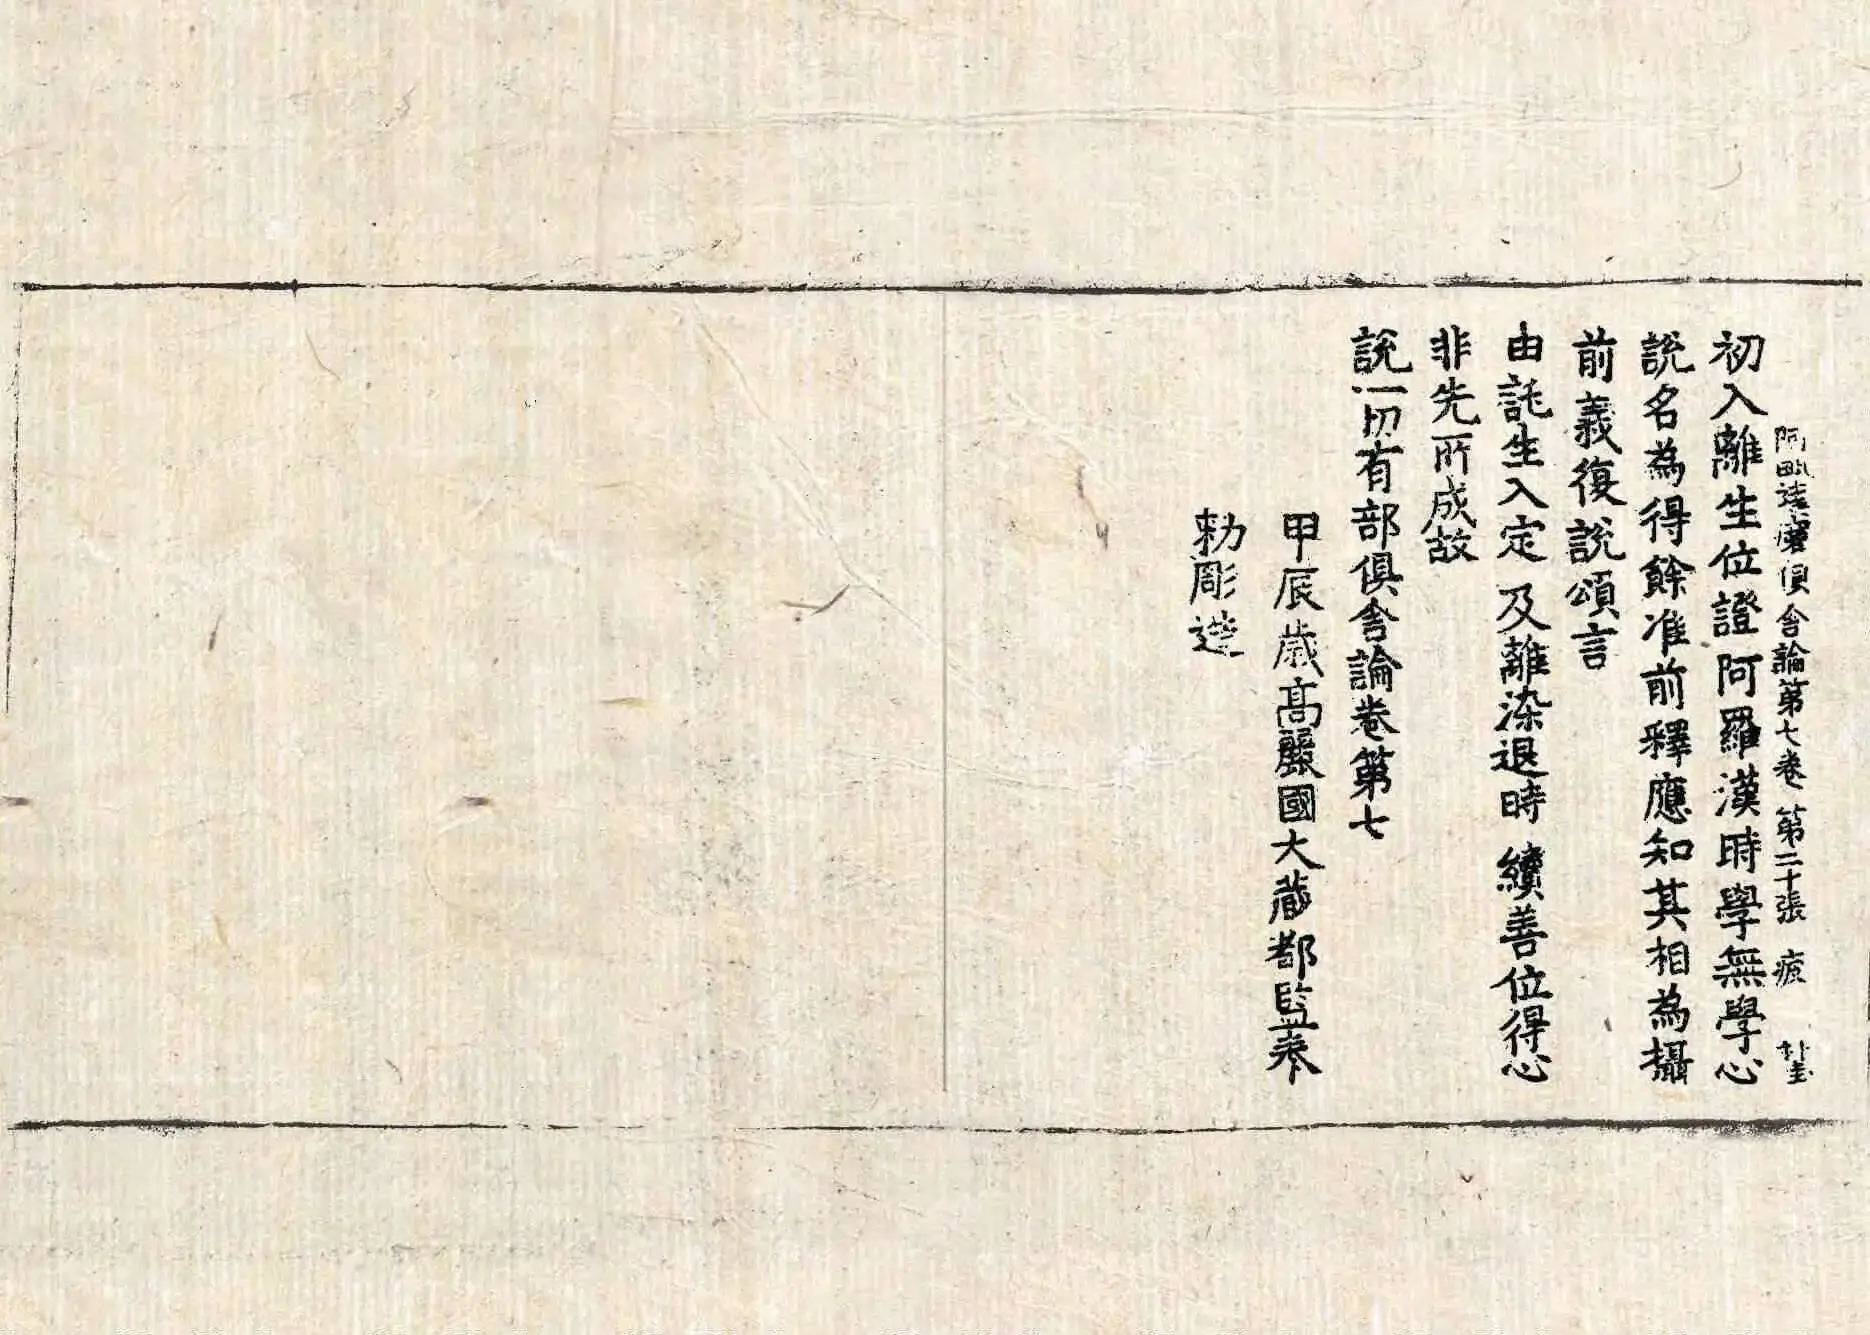 阿毗達磨俱舍論第七卷 第二十張 疲
初入離生位證阿羅漢時學無學心
說名為得餘准前釋應知其相為攝
前義復說頌言
由託生入定 及離染退時 續善位得心
非先所成故
說一切有部俱舍論卷第七
甲辰歲高麗國大藏都監奉
勅彫造